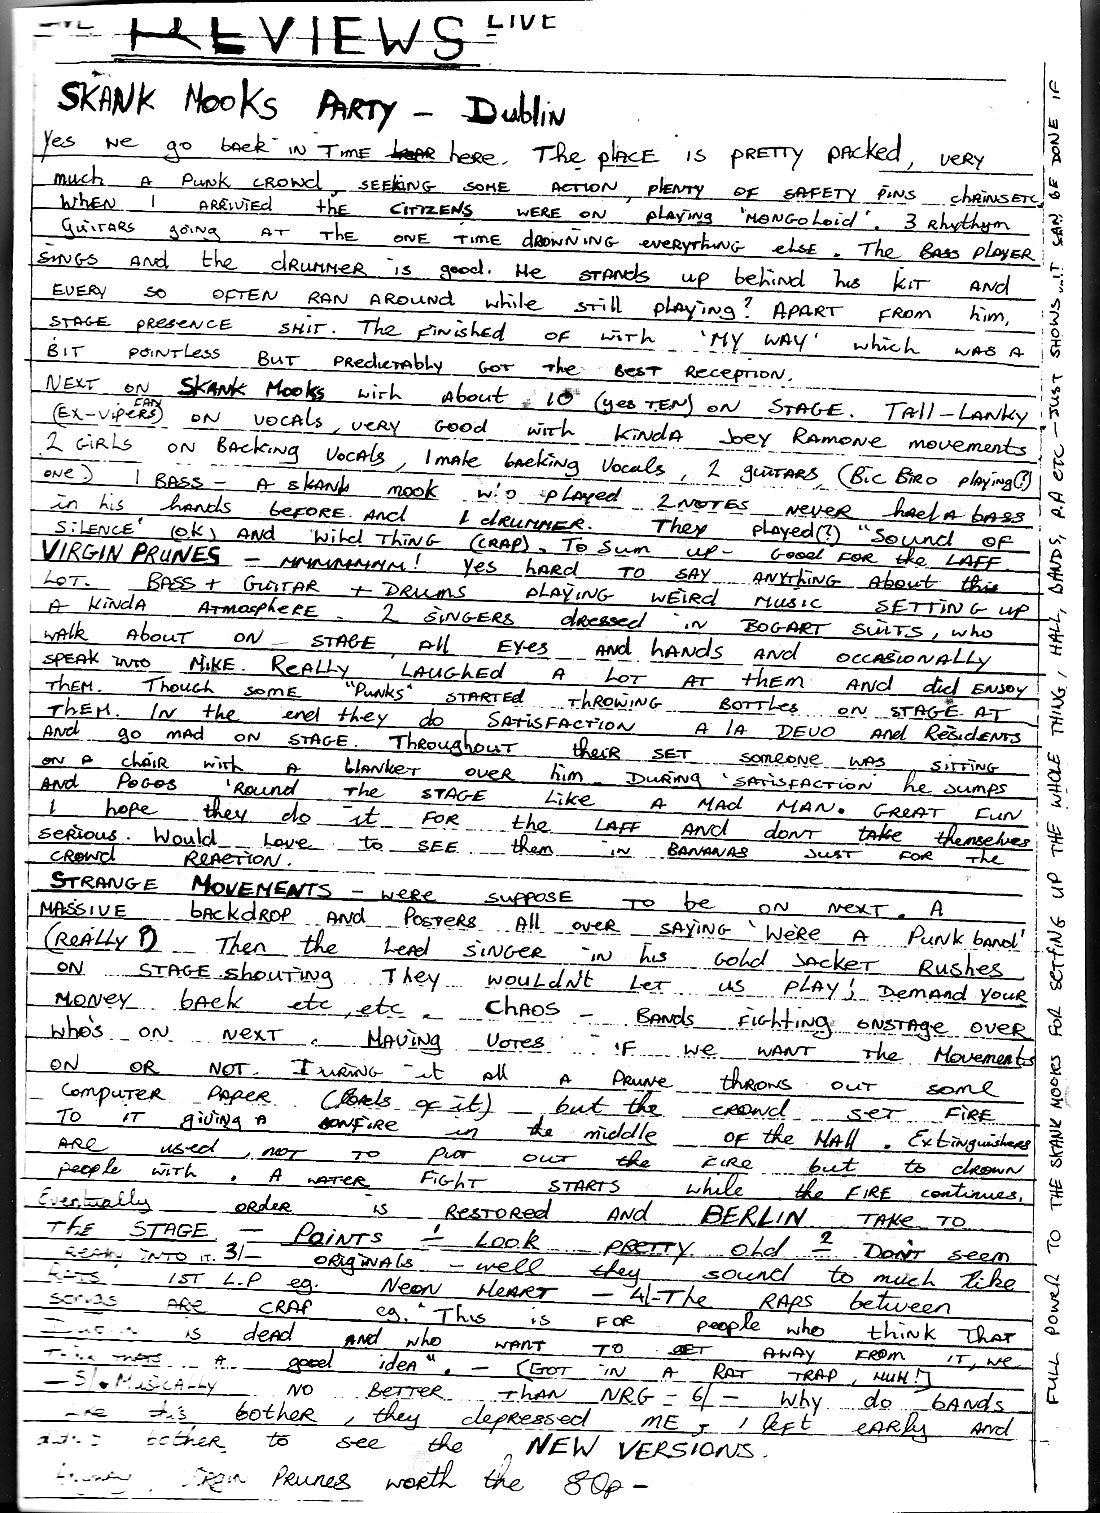 LIVE REVIEWS LIVE
SKANK MOOKS PARTY - Dublin
Yes we go back in TIME here. The place is PRETTY packed, very
much A Punk CROWD, SEEKING SOME ACTION, plenty OF SAFETY PINS chains etc.
WHEN I ARRIVIED the CITIZENS WERE ON playing 'MONGOLOID'. 3 Rhythym
Guitars going AT THE ONE TIME dROWNING everything else. The BASS PLAYER
SINGS AND the dRUMMER is good. He STANDS up behind his KIT AND
EVERY SO OFTEN RAN AROUND while still playing? APART FROM him,
STAGE presence SHIT. The finished OF with 'MY WAY' which WAS A
BIT POINTLESS BUT PREDICTABLY GOT The BEST RECEPTION.
NEXT ON SKANK MOOKS with About 10 (yes TEN) ON STAGE. TALL-LANKY
(EX-VIPERS FAN) ON VOCALS, very Good with kinda Joey Ramone movements
2 GIRLS ON BACKING VOCALS, 1 male backing Vocals, 2 guitars (BIC BIRO playing(?)
one) 1 BASS - A SKANK MOOK who played 2 NOTES never had A bass
in his hands BEFORE. And 1 dRUMMER. They played(?) "Sound OF
SILENCE' (OK) AND 'Wild THING (CRAP). To Sum up - Good FOR the LAFF.
VIRGIN PRUNES - MMMMMMM! Yes hard TO SAY ANYTHING About this
LOT. BASS + GUITAR + DRUMS playing WEIRD MUSIC SETTING up
A KINDA ATMOSPHERE. 2 SINGERS dressed in BOGART SUITS, who
walk About ON STAGE, all Eyes AND hANDS AND OCCASIONALLY
SPEAK INTO MIKE. REALLY LAUGHED A LOT AT them AND did ENJOY
THEM. Though some "Punks" STARTED THROWING BOTTLES ON STAGE AT
THEM. IN the end they do SATISFACTION A LA DEVO AND RESIDENTS
AND go mad ON STAGE. Throughout their SET someone WAS SITTING
ON A CHAIR with A blanket over him. DURING 'SATISFACTION' he jumps
AND POGOS 'ROUND THE STAGE LIKE A MAD MAN. GREAT FUN
I hope they do it FOR the LAFF AND dont take themselves
serious. Would Love to SEE them IN BANANAS JUST FOR THE
CROWD REACTION.
STRANGE MOVEMENTS - WERE SUPPOSE TO be ON NEXT. A
MASSIVE bACKdROP AND POSTERS All over SAYING 'WERE A Punk band'
(REALLY?) Then the Lead SINGER in his Gold JACKET RUSHES
ON STAGE shouting They WOULDN'T LET US PLAY! DEMAND YOUR
MONEY back etc, etc. CHAOS - BANDS FIGHTING ONSTAGE OVER
WHO'S ON NEXT. HAVING VOTES IF WE WANT THE Movements
ON OR NOT. DURING it all A PRUNE throws out some
COMPUTER PAPER (Loads of it) - but the CROWD SET FIRE
TO IT giving A BONFIRE in the middle OF the HALL. Extinguishers
ARE used, NOT TO PUT OUT the FIRE but to drown
people with. A WATER FIGHT STARTS while the FIRE continues.
Eventually ORDER is RESTORED AND BERLIN TAKE TO
THE STAGE - POINTS 1- LOOK PRETTY old 2- DONT seem
INTO IT. 3/- ORIGINALS - well they sound to much like
RATS 1ST L.P eg. NEON HEART - 4/- The RAPS between
songs ARE CRAP eg. "This is FOR people who think THAT
is dead AND who WANT TO GET AWAY FROM IT, we
A good idea". - (GOT IN A RAT TRAP, HUH!)
- 5/. Musically NO BETTER THAN NRG - 6/ - Why do bands
this bother, they depressed ME, I left early AND
bother to see the NEW VERSIONS.
PRUNES worth the 80p -
FULL POWER TO THE SKANK MOOKS FOR SETTING UP THE WHOLE THING, HALL, BANDS, P.A ETC - JUST SHOWS IT CAN BE DONE IF